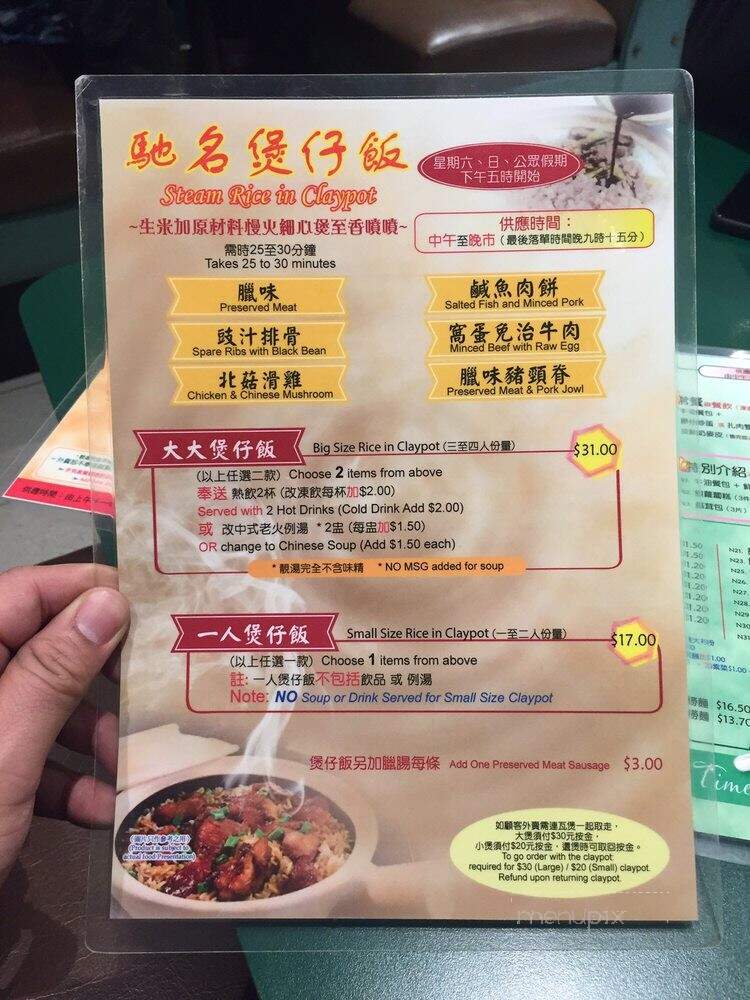 馳名煲仔飯
Steam Rice in Claypot
星期六、日、公眾假期
下午五時開始
~生米加原材料慢火細心煲至香噴噴~
供應時間：
中午至晚市（最後落單時間晚九時十五分）
需時25至30分鐘
Takes 25 to 30 minutes
臘味
Preserved Meat
鹹魚肉餅
Salted Fish and Minced Pork
豉汁排骨
Spare Ribs with Black Bean
窩蛋免治牛肉
Minced Beef with Raw Egg
北菇滑雞
Chicken & Chinese Mushroom
臘味豬頸脊
Preserved Meat & Pork Jowl
大大煲仔飯 Big Size Rice in Claypot (三至四人份量) $31.00
(以上任選二款) Choose 2 items from above
奉送 熱飲2杯 (改凍飲每杯加$2.00)
Served with 2 Hot Drinks (Cold Drink Add $2.00)
或 改中式老火例湯 *2盅 (每盅加$1.50)
OR change to Chinese Soup (Add $1.50 each)
* 靚湯完全不含味精 * NO MSG added for soup
一人煲仔飯 Small Size Rice in Claypot (一至二人份量) $17.00
(以上任選一款) Choose 1 items from above
註: 一人煲仔飯不包括飲品 或 例湯
Note: NO Soup or Drink Served for Small Size Claypot
煲仔飯另加臘腸每條 Add One Preserved Meat Sausage $3.00
(圖片只作參考之用)
(Product is subject to
actual food Presentation)
如顧客外賣需連瓦煲一起取走，
大煲須付$30元按金，
小煲須付$20元按金，還煲時可取回按金。
To go order with the claypot
required for $30 (Large) / $20 (Small) claypot.
Refund upon returning claypot.
menupix
特別介紹
N21.
N25.
N26.
N27.
N28.
N29.
N30.
$16.50
$13.70
Time